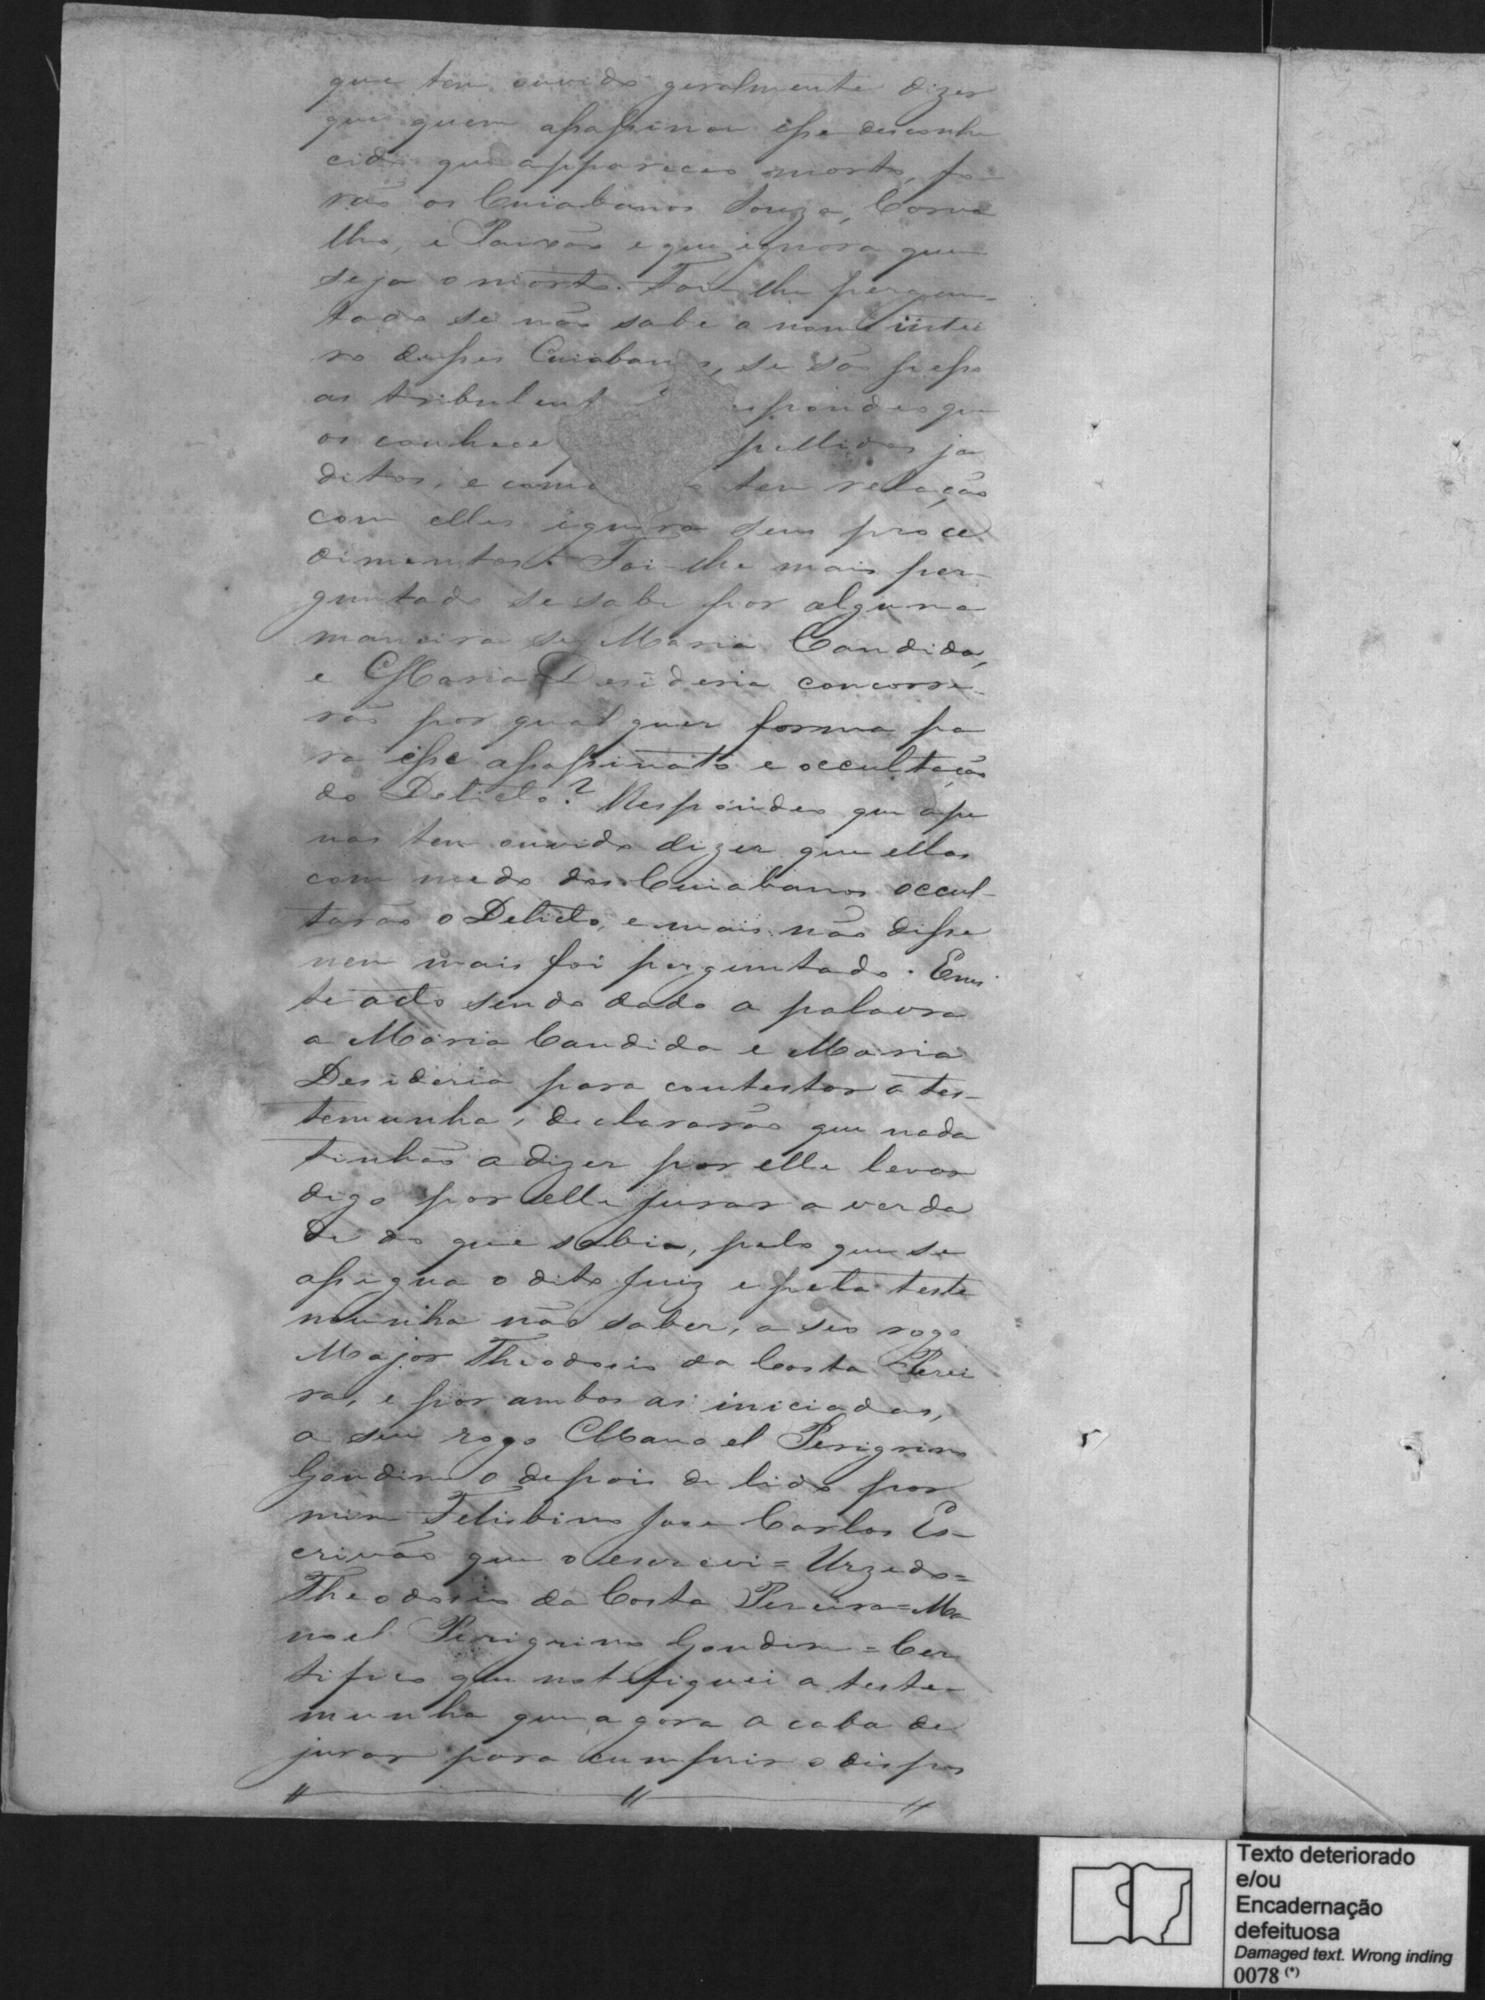 que tem ouvido geralmente dizer
que quem assassinou esse desconhe
cido que appareceo morto, fo-
rão os Cuiabanos Souza, Carva
lho, e Paixão e que ignora quem
seja o morto. Foi-lhe pergun-
tado se não sabe o nome intei
ro desses Cuiabanos, se são pesso
as tribulent espondeo que
os conhece pellidos ja
ditos, e como tem relação
com elles ignora seus proce
dimentos. Foi-lhe mais per-
guntado se sabe por alguma
maneira se Maria Candida,
e Maria Desideria concorre-
rão por qualquer forma pa
ra esse assassinato e occultação
do Delicto? Respondeo que ape
nas tem ouvido dizer que ellas
com medo dos Cuiabanos occul-
tarão o Delicto, e mais não disse
nem mais foi perguntado. Em
te acto sendo dada a palavra
a Maria Candida e Maria
Desideria para contestar a tes-
temunha, declararão que nada
tinhão a dizer por elle levar
digo por elle jurar a verda
de do que sabia, pelo que se
assigna o dito Juiz e pela teste
munha não saber, a seo rogo
Major Theodosio da Costa Perei
ra, e por ambas as iniciadas,
a seu rogo Manoel Perigrino
Gondim o depois de lido por
mim Felisbino Jose Carlos Es-
crivão que o escrevi = Urzedo =
Theodosio da Costa Pereira = Ma
noel Perigrino Gondim = Cer
tifico que notefiquei a teste-
munha que agora acaba de
jurar para cumprir o dispos
Texto deteriorado
e/ou
Encadernação
defeituosa
Damaged text. Wrong inding
0078 (*)